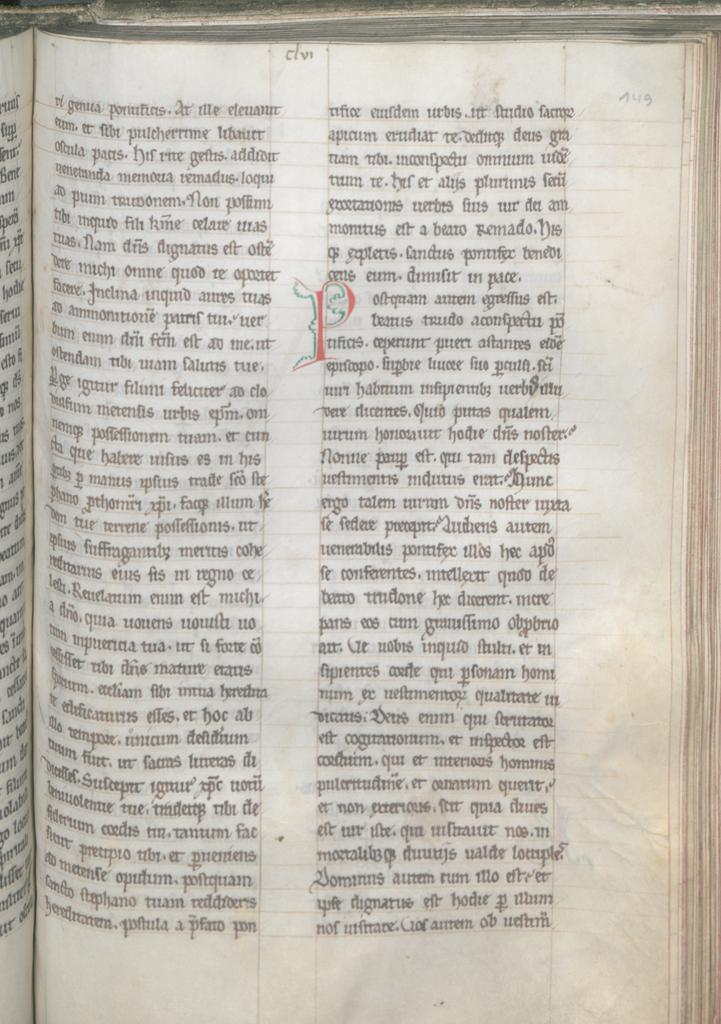 clvi
149
ri genua pontificis. At ille eleuauit
eum. et sibi pulcherrime libauit
oscula pacis. His rite gestis. addidit
ueneranda memoria remaclus. loqui
ad pium trudonem. Non possum
tibi inquid fili km̄e celare uias
tuas. Nam dn̄s dignatus est oste
dere michi omne quod te oportet
facere. Inclina inquid aures tuas
ad ammonitionē patris tui. uer
bum enim dn̄i fcm̄ est ad me. ut
ostendam tibi uiam salutis tue.
Perge igitur filimi feliciter ad clo
dulfum metensis urbis epm̄. om
nemq; possessionem tuam. et cun
cta que habere uisus es in his
ꝑ manus ipsius trade sc̄o ste
phano ꝓthomr̄i xp̄i. facq; illum he
dem tue terrene possessionis. ut
ipsius suffragantib; meritis cohe
reditarius eius sis in regno ce
lesti. Reuelatum enim est michi
a dn̄o. quia uouens uouisti uo
tum inpuericia tua. ut si forte cō
cessisset tibi dn̄s mature etatis
ecclīam sibi intua heredita
te edificaturus esses. et hoc ab
illo tempore. unicum desidium
tuum fuit. ut sacras litteras di
disceres. Suscepit igitur xp̄c uotū
beniuolentie tue. tradetq; tibi de
siderium cordis tui. tantum fac
sicut precipio tibi. et ꝑueniens
ad metense opidum. postquam
sancto stephano tuam reddideris
hereditatem. postula a p̄fato pon
tifice eiusdem urbis. ut studio sacroꝝ
apicum erudiat te. deditq; deus gra
tiam tibi. inconspectu omnium uidē
tium te. His et alijs plurimis secū
exortationis uerbis fius uir dei am
monitus est a beato Remaclo. His
q; expletis. sanctus pontifex benedi
cens eum. dimisit in pace.
Postquam autem egressus est.
beatus trudo aconspectu pō
tificis. ceperunt pueri astantes eidē
episcopo. suꝑbie liuore suo ꝑculsi. sc̄i
uiri habitum insipientib; uerbis illu
dere dicentes. Quid putas qualem
uirum honorauit hodie dn̄s noster.
Nonne pauꝑ est. qui tam despectis
uestimentis indutus erat. Hunc
ergo talem uirum dn̄s noster iuxta
se sedere precepit. Audiens autem
uenerabilis pontifex illos hec apud
se conferentes. intellexit quod de
beato trudone hec dicerent. incre
pans eos cum grauissimo obꝓbrio
ait. Ue uobis inquid stulti. et in
sipientes corde qui ꝑsonam homi
num ex uestimentoꝝ qualitate iu
dicatis. Deus enim qui scrutator
est cogitationum. et inspector est
cordium. qui et interioris hominis
pulcritudinē. et ornatum querit.
et non exterioris. scit quia diues
est uir iste. qui uisitauit nos. in
mortalibq; diuitijs ualde locuples.
Dominus autem cum illo est. et
ipse dignatus est hodie ꝑ illum
nos uisitare. Uos autem ob uestrm̄